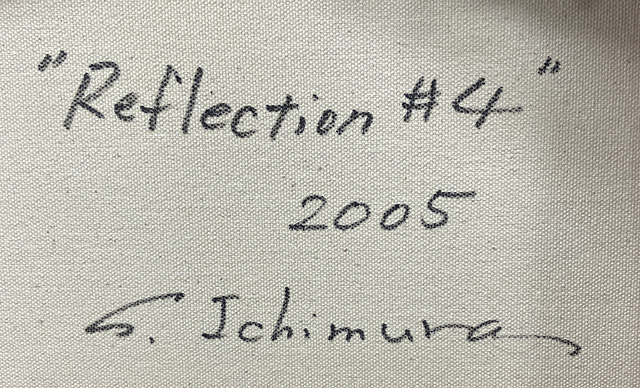 "Reflection #4"
2005
S. Ichimura